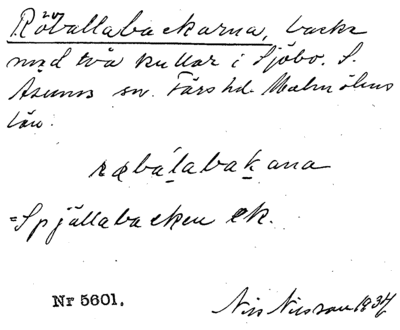 Röballabackarna, backe
med två kullar i Sjöbo. S.
Åsums sn. Färs hd. Malmöhus
län.
ræbálabakana
=Spjällabacken ek.
Nr 5601.
Nils Nilsson 1934